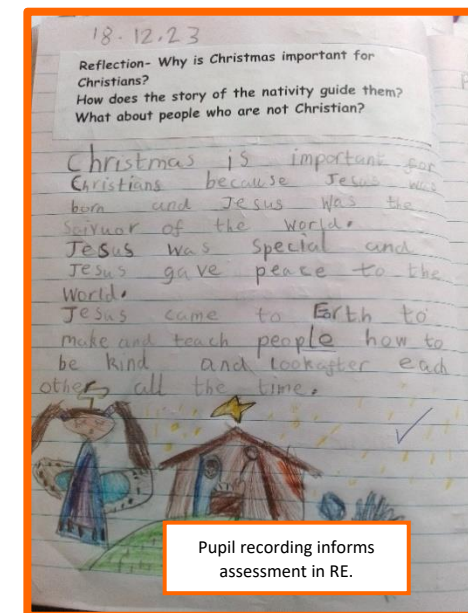 18.12.23
Reflection- Why is Christmas important for
Christians?
How does the story of the nativity guide them?
What about people who are not Christian?
Christmas is important for
Christians because Jesus was
born and Jesus was the
Saivuor of the world.
Jesus was special and
Jesus gave peace to the
World.
Jesus came to Earth to
make and teach people how to
be kind and lookafter each
other all the time.
Pupil recording informs
assessment in RE.